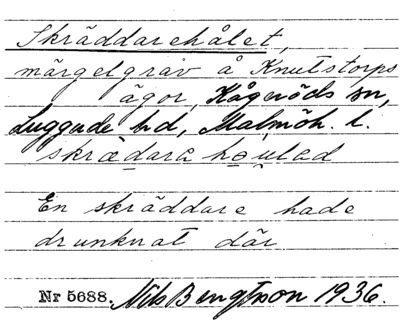 Skräddarehålet,
märgelgrav å Knutstorps
ägor, Kågeröds sn,
Luggude hd, Malmöh. l.
skrædara họulad
En skräddare hade
drunknat där
Nr 5688. Nils Bengtsson 1936.